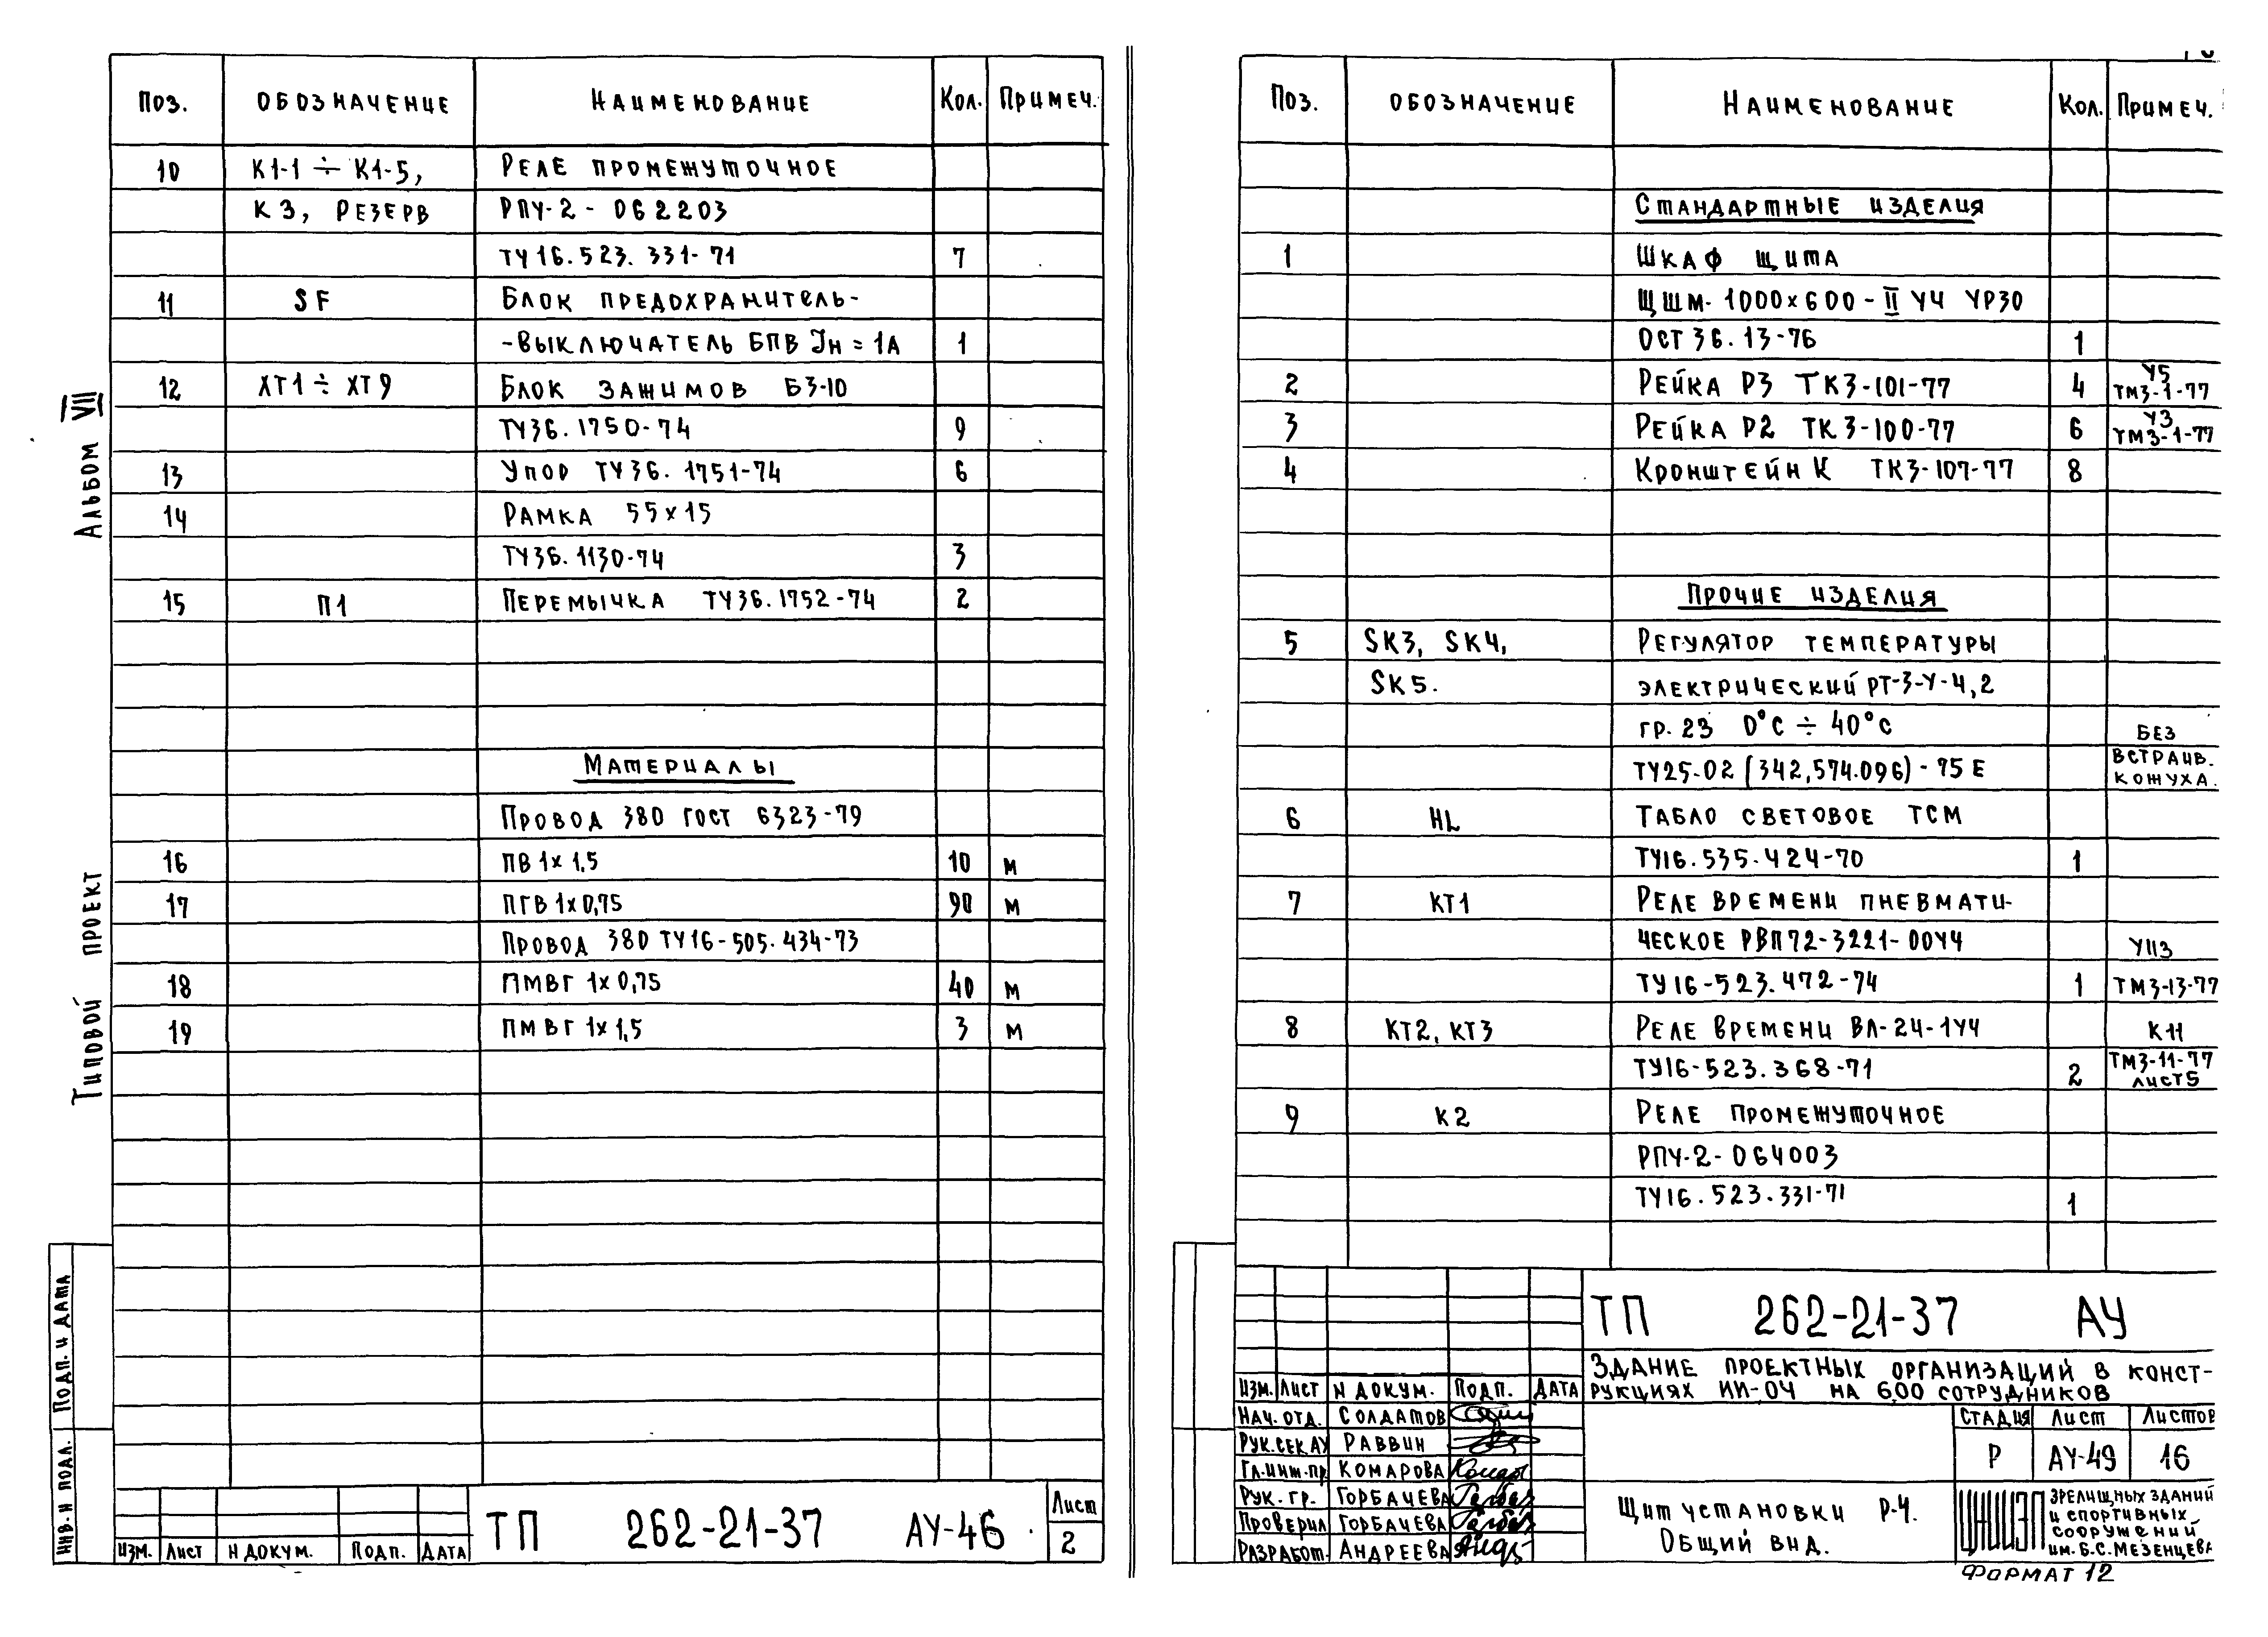 Альбом VII
Типовой проект
Подп. и дата
Инв. N подл.
Поз. Обозначение Наименование Кол. Примеч.
10 К1-1 ÷ К1-5, Реле промежуточное
К3, резерв РПУ-2-062203
ТУ16.523.331-71 7
11 SF Блок предохранитель-
-выключатель БПВ Jн=1А 1
12 ХТ1 ÷ ХТ9 Блок зажимов БЗ-10
ТУ36.1750-74 9
13 Упор ТУ36.1751-74 6
14 Рамка 55х15
ТУ36.1130-74 3
15 П1 Перемычка ТУ36.1752-74 2
Материалы
Провод 380 ГОСТ 6323-79
16 ПВ 1х1,5 10 м
17 ПГВ 1х0,75 90 м
Провод 380 ТУ16-505.434-73
18 ПМВГ 1х0,75 40 м
19 ПМВГ 1х1,5 3 м
Изм. Лист N докум. Подп. Дата
ТП 262-21-37 АУ-46
Лист
2
Поз. Обозначение Наименование Кол. Примеч.
Стандартные изделия
1 Шкаф щита
ЩШМ-1000х600-II У4 УР30
ОСТ 36.13-76 1
2 Рейка Р3 ТК3-101-77 4 У5 ТМ3-1-77
3 Рейка Р2 ТК3-100-77 6 У3 ТМ3-1-77
4 Кронштейн К ТК3-107-77 8
Прочие изделия
5 SK3, SK4, Регулятор температуры
SK5. электрический РТ-3-У-4,2
гр. 23 0°С ÷ 40°С без
ТУ25-02 (342,574.096)-75Е встраив. кожуха.
6 HL Табло световое ТСМ
ТУ16.535.424-70 1
7 КТ1 Реле времени пневмати-
ческое РВП72-3221-00У4 УП3
ТУ16-523.472-74 1 ТМ3-13-77
8 КТ2, КТ3 Реле времени ВЛ-24-1У4 К11
ТУ16-523.368-71 2 ТМ3-11-77 лист5
9 К2 Реле промежуточное
РПУ-2-064003
ТУ16.523.331-71 1
ТП 262-21-37 АУ
Здание проектных организаций в конст-
рукциях ИИ-04 на 600 сотрудников
Изм. Лист N докум. Подп. Дата
Нач. отд. Солдатов
Рук. сек АУ Раввин
Гл. инж. пр Комарова
Рук. гр. Горбачева
Проверил Горбачева
Разработ. Андреева
Стадия Лист Листов
Р АУ-49 16
Щит установки Р-4.
Общий вид.
ЦНИИЭП
зрелищных зданий
и спортивных
сооружений
им. Б.С. Мезенцева
Формат 12